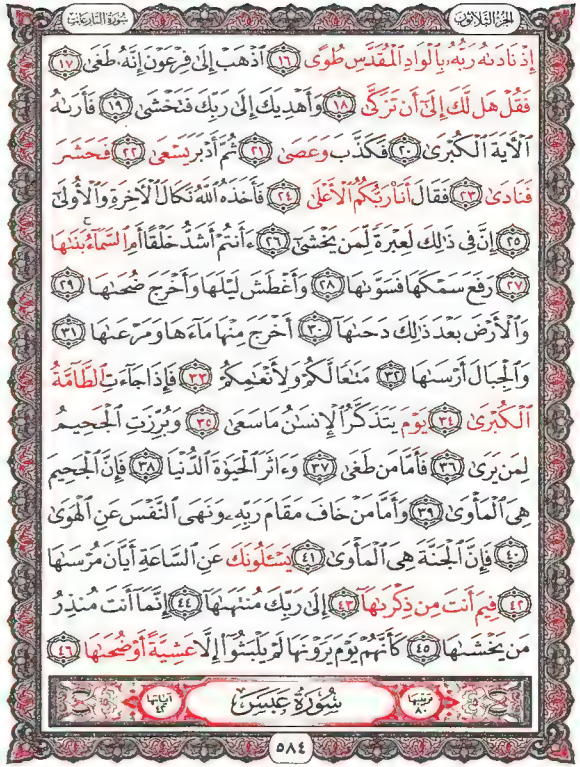 الجزء الثلاثون
سورة النازعات
إِذْ نَادَىٰهُ رَبُّهُۥ بِٱلْوَادِ ٱلْمُقَدَّسِ طُوًى ١٦ ٱذْهَبْ إِلَىٰ فِرْعَوْنَ إِنَّهُۥ طَغَىٰ ١٧
فَقُلْ هَل لَّكَ إِلَىٰٓ أَن تَزَكَّىٰ ١٨ وَأَهْدِيَكَ إِلَىٰ رَبِّكَ فَتَخْشَىٰ ١٩ فَأَرَىٰهُ
ٱلْـَٔايَةَ ٱلْكُبْرَىٰ ٢٠ فَكَذَّبَ وَعَصَىٰ ٢١ ثُمَّ أَدْبَرَ يَسْعَىٰ ٢٢ فَحَشَرَ
فَنَادَىٰ ٢٣ فَقَالَ أَنَا۠ رَبُّكُمُ ٱلْأَعْلَىٰ ٢٤ فَأَخَذَهُ ٱللَّهُ نَكَالَ ٱلْـَٔاخِرَةِ وَٱلْأُولَىٰٓ
٢٥ إِنَّ فِى ذَٰلِكَ لَعِبْرَةً لِّمَن يَخْشَىٰٓ ٢٦ ءَأَنتُمْ أَشَدُّ خَلْقًا أَمِ ٱلسَّمَآءُ ۚ بَنَىٰهَا
٢٧ رَفَعَ سَمْكَهَا فَسَوَّىٰهَا ٢٨ وَأَغْطَشَ لَيْلَهَا وَأَخْرَجَ ضُحَىٰهَا ٢٩
وَٱلْأَرْضَ بَعْدَ ذَٰلِكَ دَحَىٰهَآ ٣٠ أَخْرَجَ مِنْهَا مَآءَهَا وَمَرْعَىٰهَا ٣١
وَٱلْجِبَالَ أَرْسَىٰهَا ٣٢ مَتَٰعًا لَّكُمْ وَلِأَنْعَٰمِكُمْ ٣٣ فَإِذَا جَآءَتِ ٱلطَّآمَّةُ
ٱلْكُبْرَىٰ ٣٤ يَوْمَ يَتَذَكَّرُ ٱلْإِنسَٰنُ مَا سَعَىٰ ٣٥ وَبُرِّزَتِ ٱلْجَحِيمُ
لِمَن يَرَىٰ ٣٦ فَأَمَّا مَن طَغَىٰ ٣٧ وَءَاثَرَ ٱلْحَيَوٰةَ ٱلدُّنْيَا ٣٨ فَإِنَّ ٱلْجَحِيمَ
هِىَ ٱلْمَأْوَىٰ ٣٩ وَأَمَّا مَنْ خَافَ مَقَامَ رَبِّهِۦ وَنَهَى ٱلنَّفْسَ عَنِ ٱلْهَوَىٰ
٤٠ فَإِنَّ ٱلْجَنَّةَ هِىَ ٱلْمَأْوَىٰ ٤١ يَسْـَٔلُونَكَ عَنِ ٱلسَّاعَةِ أَيَّانَ مُرْسَىٰهَا
٤٢ فِيمَ أَنتَ مِن ذِكْرَىٰهَآ ٤٣ إِلَىٰ رَبِّكَ مُنتَهَىٰهَآ ٤٤ إِنَّمَآ أَنتَ مُنذِرُ
مَن يَخْشَىٰهَا ٤٥ كَأَنَّهُمْ يَوْمَ يَرَوْنَهَا لَمْ يَلْبَثُوٓا۟ إِلَّا عَشِيَّةً أَوْ ضُحَىٰهَا ٤٦
ترتيبها ٨٠
سُورَةُ عَبَسَ
آياتها ٤٢
٥٨٤